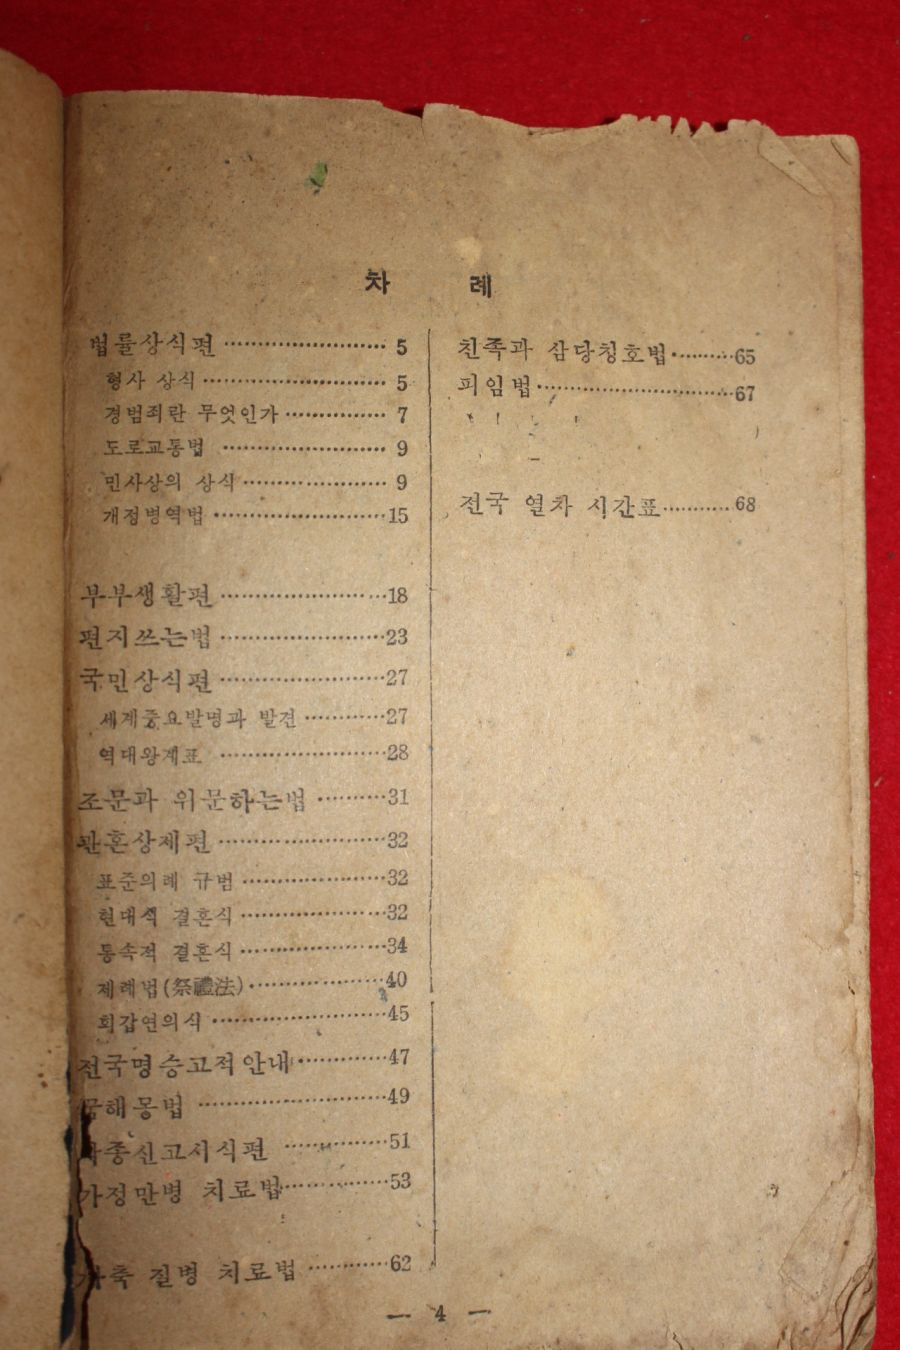 차 례
법률상식편 5
형사 상식 5
경범죄란 무엇인가 7
도로교통법 9
민사상의 상식 9
개정병역법 15
부부생활편 18
편지쓰는법 23
국민상식편 27
세계중요발명과 발견 27
역대왕계표 28
조문과 위문하는법 31
관혼상제편 32
표준의례 규범 32
현대식 결혼식 32
통속적 결혼식 34
제례법(祭禮法) 40
회갑연의식 45
전국명승고적안내 47
꿈해몽법 49
각종신고서식편 51
가정만병 치료법 53
가축 질병 치료법 62
친족과 삼당칭호법 65
피임법 67
전국 열차 시간표 68
— 4 —